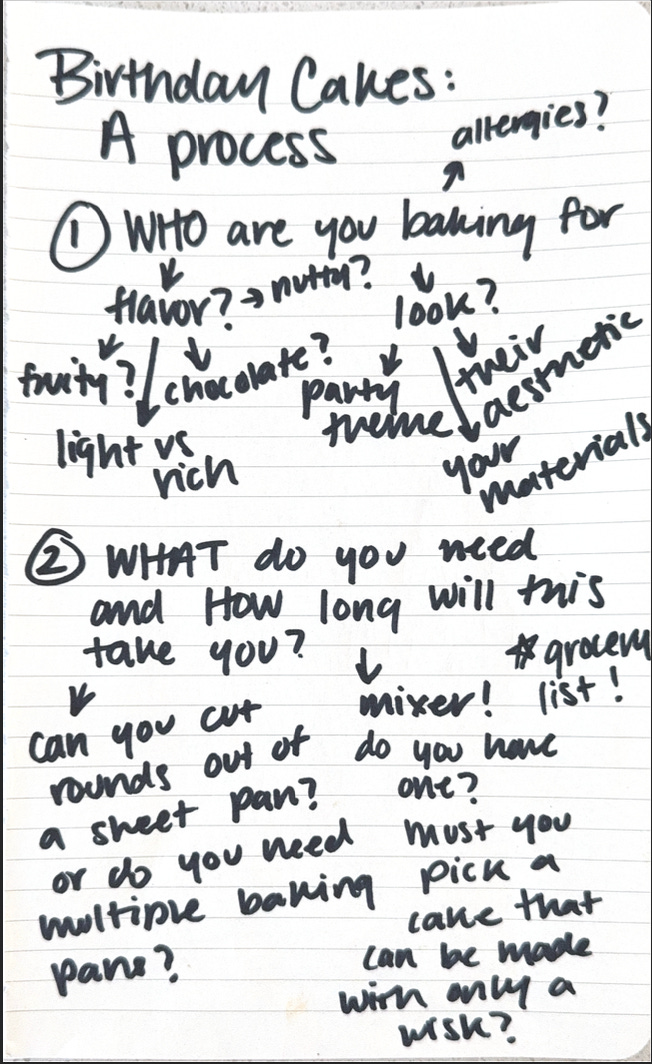 Birthday Cakes:
A process
allergies?
① WHO are you baking for
flavor? → nutty?
look?
fruity?
chocolate?
light vs
rich
party
theme
their
aesthetic
your
materials
② WHAT do you need
and How long will this
take you?
* grocery
list!
can you cut
rounds out of
a sheet pan?
or do you need
multiple baking
pans?
mixer!
do you have
one?
must you
pick a
cake that
can be made
with only a
wisk?